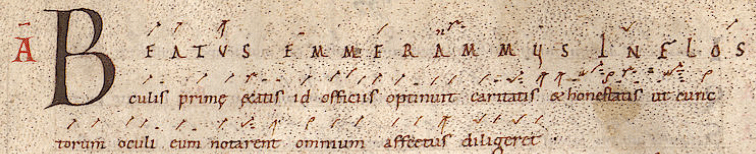 Ā BEATUS EMMERAMMUS IN FLOS
culis primę ętatis id officiis optinuit caritatis & honestatis ut cunc
torum oculi eum notarent omnium affectus diligeret